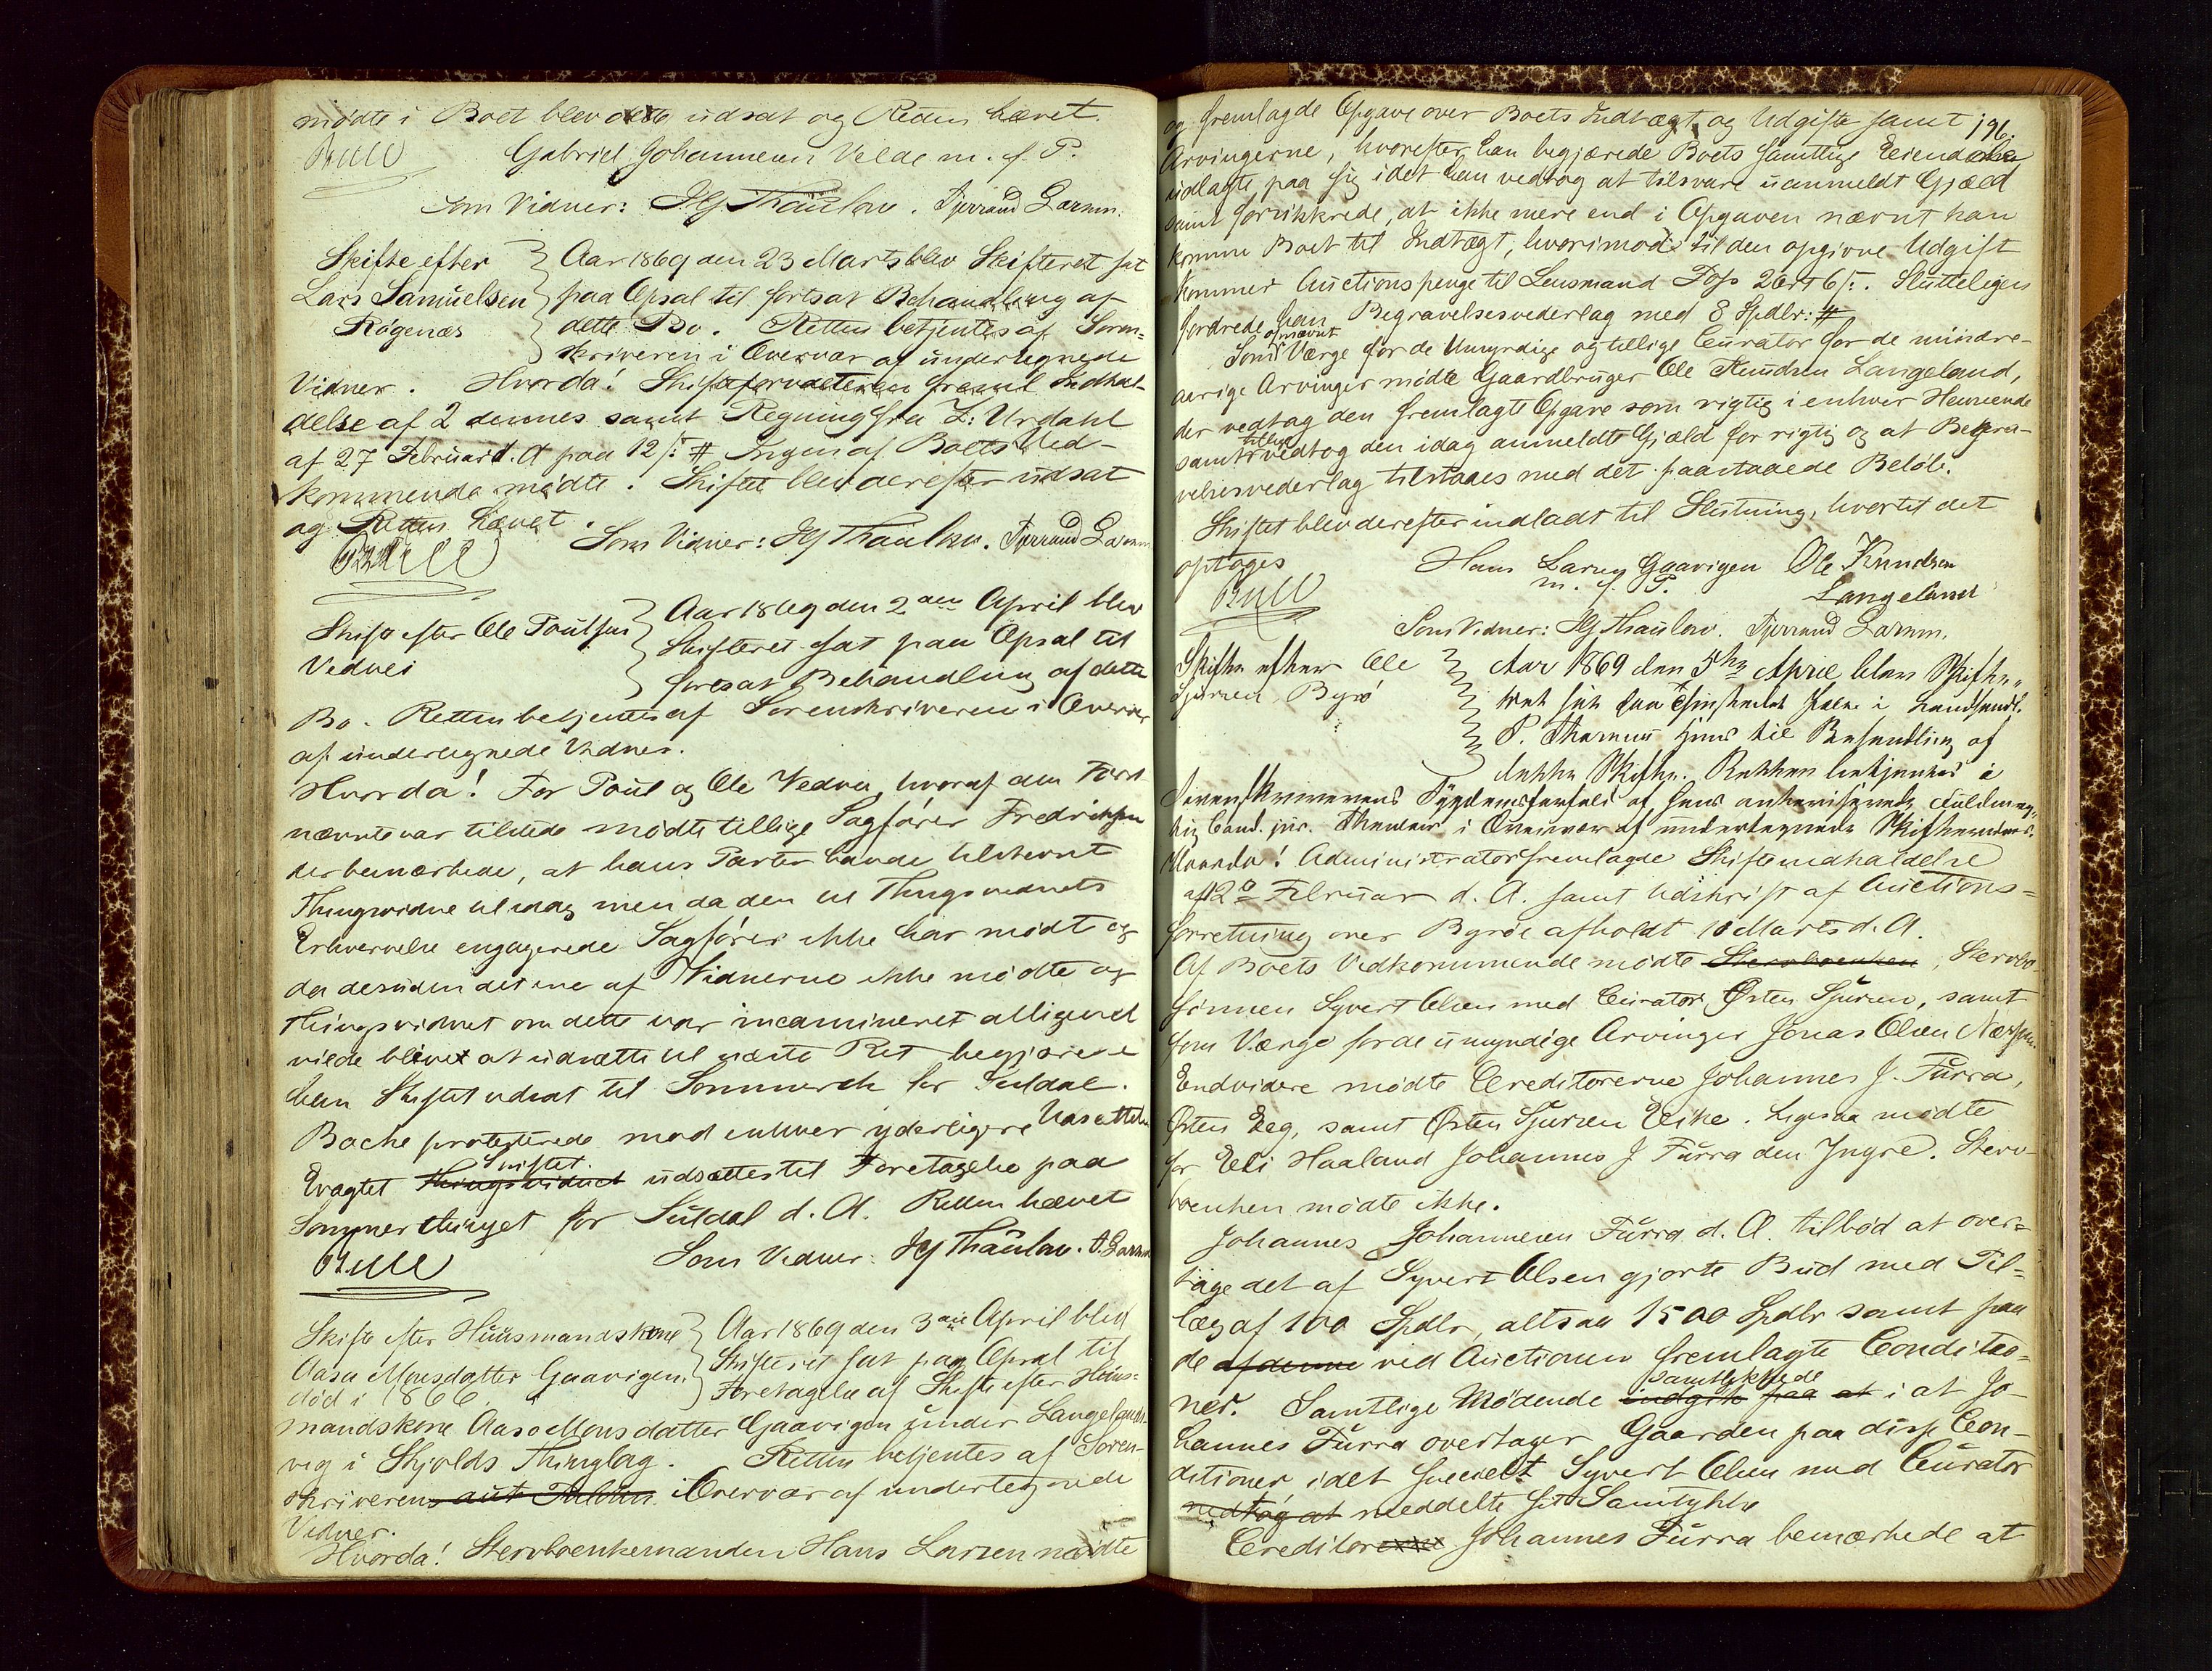 mødte i Boet blev dette udsat og Retten hævet.
Bull Gabriel Johannesen Velde m. f. P.
Som Vidner: HJ Thaulow. Tjerrand Larsen.
Skifte efter
Lars Samuelsen
Røgenæs
Aar 1869 den 23 Marts blev Skifteret sat
paa Opsal til fortsat Behandling af
dette Bo. Retten betjentes af Soren-
skriveren i Overvær af undertegnede
Vidner. Hvorda! Skifteforvalteren freml Indkal-
delse af 2 dennes samt Regning fra L: Urdahl
af 27 Februar d. A paa 12 /: # Ingen af Boets Ved-
kommende mødte. Skiftet blev derefter udsat
og Retten hævet.
Bull Som Vidner: HJ Thaulow. Tjerrand Larsen
Skifte efter Ole Poulsen
Vednei
Aar 1869 den 2den April blev
Skifteret sat paa Opsal til
fortsat Behandling af dette
Bo. Retten betjentes af Sorenskriveren i Overvær
af undertegnede Vidner.
Hvorda! For Poul og Ole Vednei, hvoraf den Først-
nævnte var tilstede mødte tillige Sagfører Fredriksen
der bemærkede, at hans Parter havde tilstevnt
Thingsvidne til idag men da den til Thingsvidnets
Erhvervelse engagerede Sagfører ikke har mødt og
da desuden det ene af Vidnerne ikke mødte og
Thingsvidnet om dette var incamineret alligevel
vilde blevet at udsætte til næste Ret begjærede
han Skiftet udsat til Sommerth for Suldal.
Bache protesterede mod enhver yderligere Udsættelse
Eragtet Thingsvidnet Skiftet udsættes til Foretagelse paa
Sommerthinget for Suldal d. A. Retten hævet
Bull Som Vidner: HJ Thaulow. T. Larsen
Skifte efter Huusmandskone
Aasa Monsdatter Gaavigen
død i 1866.
Aar 1869 den 3die April blev
Skifteret sat paa Opsal til
Foretagelse af Skifte efter Huus-
mandskone Aasa Monsdatter Gaavigen under Langelands-
veg i Skjolds Thinglag. Retten betjentes af Soren-
skriveren i Overvær af undertegnede
Vidner.
Hvorda! Stervboenkemanden Hans Larsen mødte
196.
og fremlagde Opgave over Boets Indtægt og Udgift samt
Arvingerne, hvorefter han begjærede Boets samtlige Eiendele
udlagte paa sig idet han vedtog at tilsvare uanmeldt Gjæld
samt forsikkrede, at ikke mere end i Opgaven nævnt kan
komme Boet til Indtægt, hvorimod til den opgivne Udgift
kommer Auctionspenge til Lensmand Foss 2 ort 6 /:. Slutteligen
fordrede han Begravelsesvederlag med 8 Spdlr: #
Som opnævnt Værge for de Umyndige og tillige Curator for de mindre-
aarige Arvinger mødte Gaardbruger Ole Knudsen Langeland,
der vedtog den fremlagte Opgave som rigtig i enhver Henseende
samt tillige vedtog den idag anmeldte Gjæld for rigtig og at Begra-
velsesvederlag tilstaaes med det paastaaede Beløb.
Skiftet blev derefter indladt til Slutning, hvortil det
optages Hans Larsen Gaavigen Ole Knudsen
m. f. P. Langeland
Bull
Som Vidner: HJ Thaulow. Tjerrand Larsen.
Skifte efter Ole
Sjursen Byrø
Aar 1869 den 5te April blev Skifte-
ret sat paa i Landhandl.
P. Huus til Behandling af
dette Skifte. Retten betjentes i
Sorenskriverens Sygdomsforfald af hans autoriserede Fuldmæg-
tig Cand. jur. i Overvær af undertegnede Skiftevidner.
Hvorda! Administrator fremlagde Skifteindkaldelse
af 12te Februar d. A. samt Udskrift af Auctions-
forretning over Byrøe afholdt 10 Marts d. A.
Af Boets Vedkommende mødte Stervboenken, Stervbo-
sønnen Syvert Olsen med Curator Østen Sjursen, samt
som Værge for de umyndige Arvinger Jonas Olsen
Endvidere mødte Creditorerne Johannes J. Furra,
Østen Eeg, samt Østen Sjursen Eike. Ligesaa mødte
for Eli Haaland Johannes J Furra den Yngre. Sterv-
boenken mødte ikke.
Johannes Johannesen Furra d. Æ. tilbød at over-
tage det af Syvert Olsen gjorte Bud med Til-
læg af 100 Spdlr, altsaa 1500 Spdlr samt paa
de af denne ved Auctionen fremlagte Conditio-
ner. Samtlige Mødende indgik paa at samtykkede i at Jo-
hannes Furra overtager Gaarden paa disse Con-
ditioner, idet specielt Syvert Olsen med Curator
vedtog at meddelte sit Samtykke
Creditor Johannes Furra bemærkede at